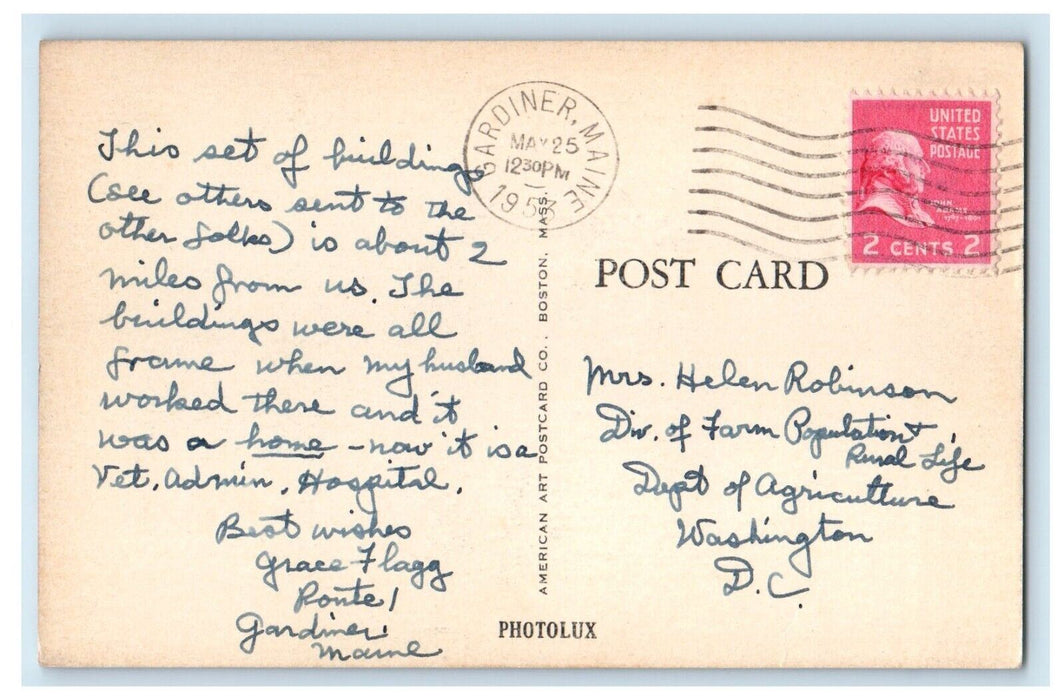 This set of buildings
(see others sent to the
other folks) is about 2
miles from us. The
buildings were all
frame when my husband
worked there and it
was a home - now it is a
Vet. Admin. Hospital.
Best wishes
Grace Flagg
Route 1
Gardiner,
Maine
GARDINER, MAINE
MAY 25
12 30 PM
1953
UNITED
STATES
POSTAGE
JOHN
ADAMS
1797-1801
2 CENTS 2
POST CARD
AMERICAN ART POSTCARD CO., BOSTON, MASS.
Mrs. Helen Robinson
Div. of Farm Population +
Rural Life
Dept of Agriculture
Washington
D.C.
PHOTOLUX